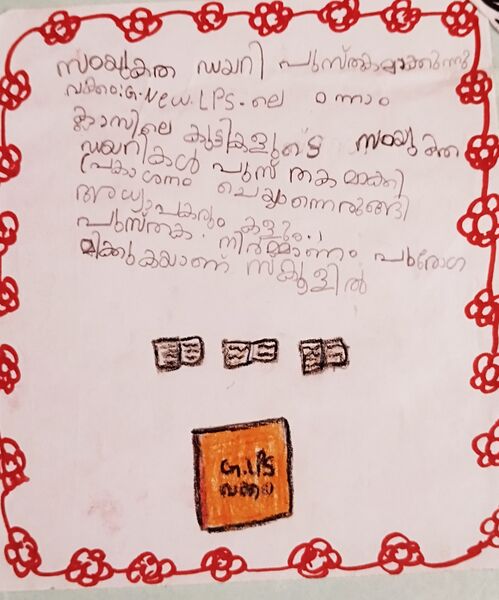 സംയുക്ത ഡയറി പുസ്തകമാക്കുന്നു
വക്കം: G.New.LPS-ലെ ഒന്നാം
ക്ലാസിലെ കുട്ടികളുടെ സംയുക്ത
ഡയറികൾ പുസ്തകമാക്കി
പ്രകാശനം ചെയ്യാനൊരുങ്ങി
അധ്യാപകരും കുട്ടികളും.
പുസ്തക നിർമ്മാണം പുരോഗ
മിക്കുകയാണ് സ്കൂളിൽ
G.LPS
വക്കം